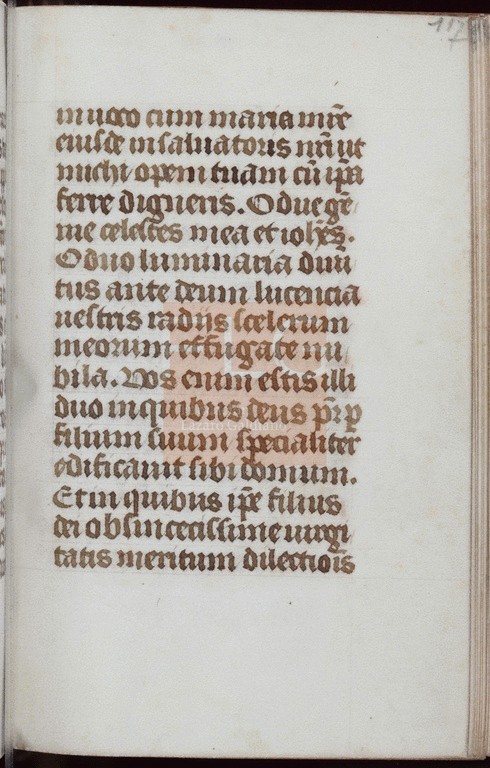 117
inuoco cum maria mr̄e
eiusdē in saluatoris nr̄i ut
michi openi tuam cū ip̄a
ferre digneris. O due gē
me celestes mea et ioh̄es.
O duo luminaria diui
tus ante deum lucencia
uestris radijs scelerum
meorum effugate nu
bila. Vos enim estis illi
duo in quibus deus pr̄ p
filium suum specialiter
edificauit sibi domum.
Et in quibus ip̄e filius
dei ob sincerissime uirgi
tatis meritum dilectiōis
Lázaro Galdiano